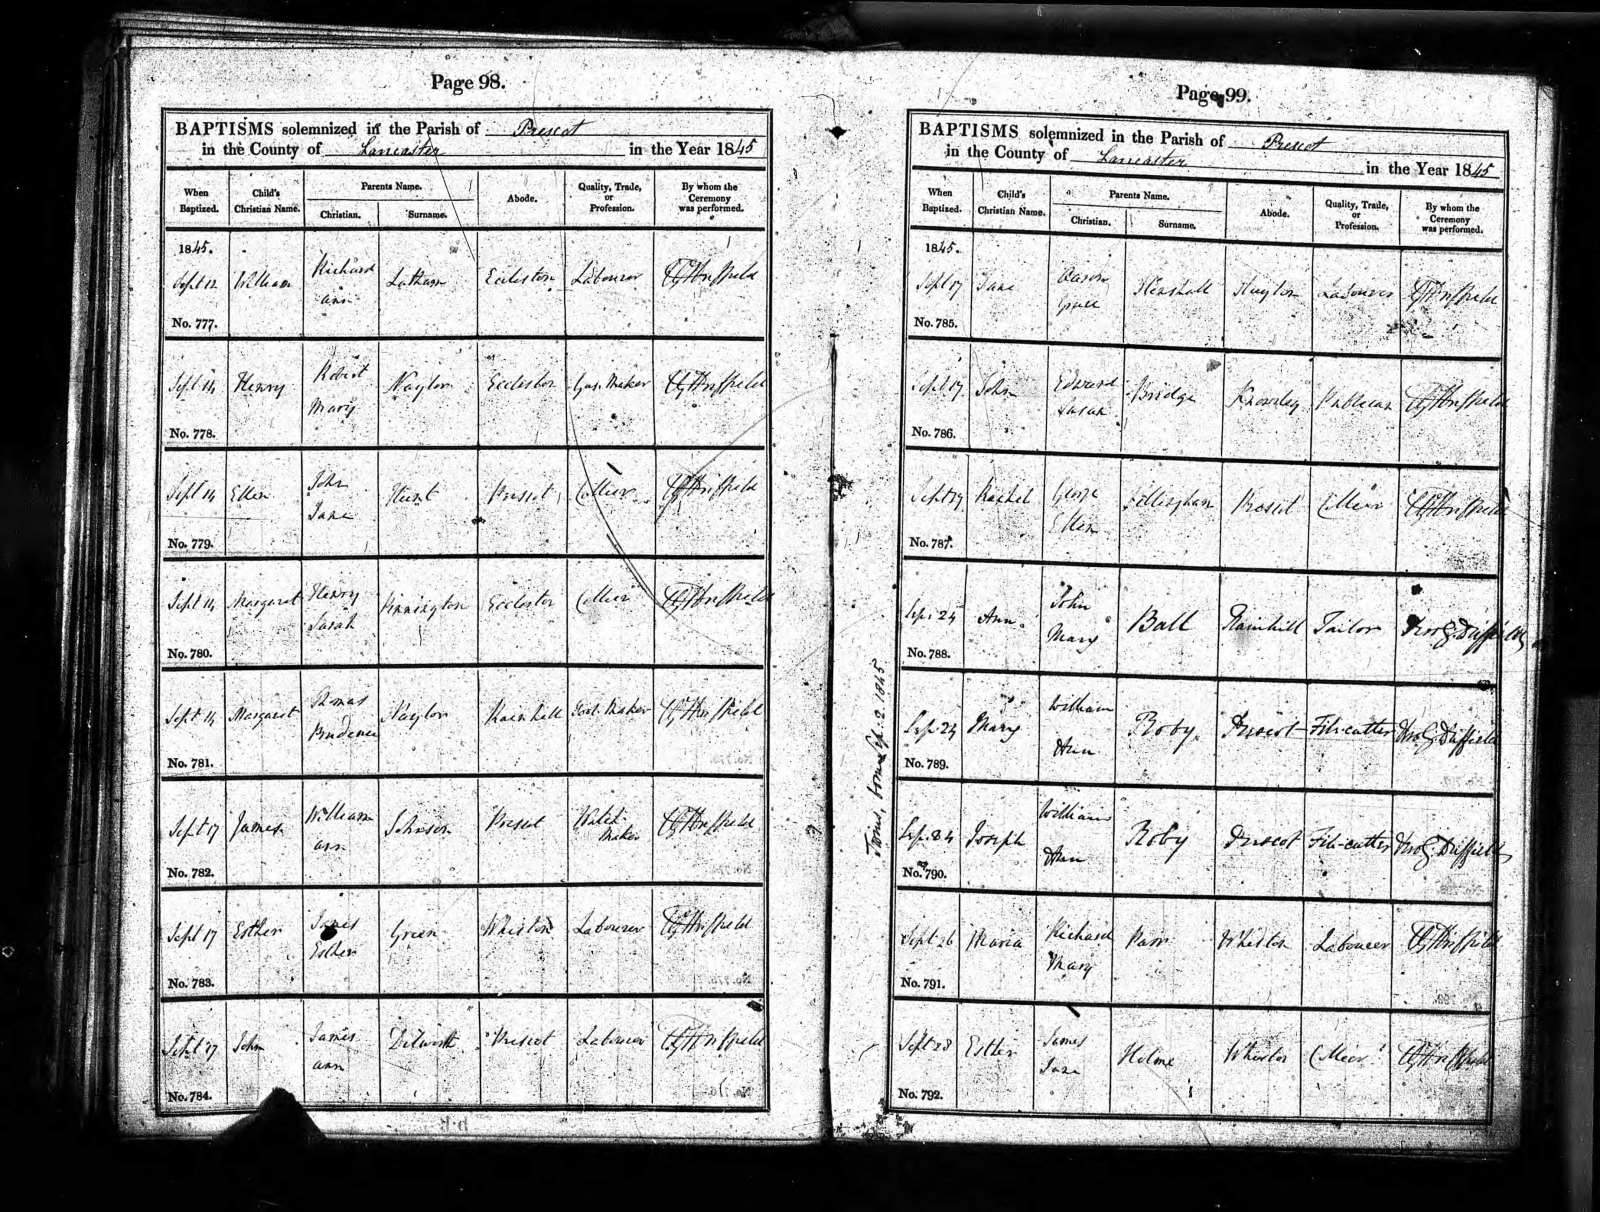 Page 98.
BAPTISMS solemnized in the Parish of Prescot
in the County of Lancaster in the Year 1845
When Baptized. Child's Christian Name. Parents Name. Christian. Surname. Abode. Quality, Trade, or Profession. By whom the Ceremony was performed.
1845.
Sept 12 William Richard Ann Latham Eccleston Labourer
No. 777.
Sept 14 Henry Robert Mary Naylor Eccleston Gas Maker
No. 778.
Sept 14 Ellen John Jane Hunt Prescot Collier
No. 779.
Sept 14 Margaret Henry Sarah Pennington Eccleston Collier
No. 780.
Sept 14 Margaret Thomas Prudence Naylor Rainhill Tool Maker
No. 781.
Sept 17 James William Ann Johnson Prescot Watch Maker
No. 782.
Sept 17 Esther James Esther Green Whiston Labourer
No. 783.
Sept 17 John James Ann Dilworth Prescot Labourer
No. 784.
Page 99.
BAPTISMS solemnized in the Parish of Prescot
in the County of Lancaster in the Year 1845
When Baptized. Child's Christian Name. Parents Name. Christian. Surname. Abode. Quality, Trade, or Profession. By whom the Ceremony was performed.
1845.
Sept 17 Jane Aaron Grace Henshall Huyton Labourer
No. 785.
Sept 17 John Edward Susan Bridge Knowsley Publican
No. 786.
Sept 19 Rachel George Ellen Prescot Collier
No. 787.
Sep. 24 Ann John Mary Ball Rainhill Tailor Duffield
No. 788.
Sep. 24 Mary William Ann Roby Prescot File-cutter Duffield
No. 789.
Sep. 24 Joseph William Ann Roby Prescot File-cutter Duffield
No. 790.
Twins, born Sep. 2. 1845
Sept 26 Maria Richard Mary Parr Whiston Labourer
No. 791.
Sept 28 Esther James Jane Holme Whiston Collier
No. 792.